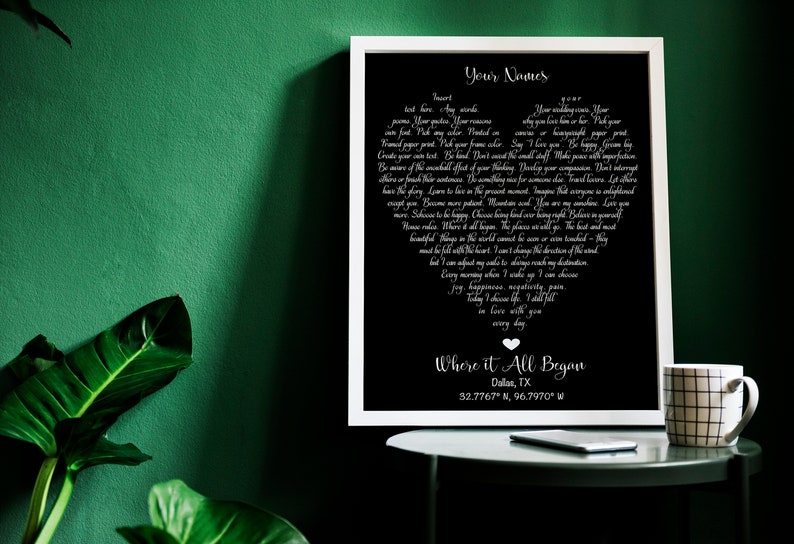 Your Names
Insert your
text here. Any words. Your wedding vows. Your
poems. Your quotes. Your reasons why you love him or her. Pick your
own font. Pick any color. Printed on canvas or heavyweight paper print.
Framed paper print. Pick your frame color. Say "I love you". Be happy. Gream big.
Create your own text. Be kind. Don't sweat the small stuff. Make peace with imperfection.
Be aware of the snowball effect of your thinking. Develop your compassion. Don't interrupt
others or finish their sentences. Do something nice for someone else. Travel lovers. Let others
have the glory. Learn to live in the present moment. Imagine that everyone is enlightened
except you. Become more patient. Mountain soul. You are my sunshine. Love you
more. Schoose to be happy. Choose being kind over being right. Believe in yourself.
House rules. Where it all began. The places we will go. The best and most
beautiful things in the world cannot be seen or even touched – they
must be felt with the heart. I can't change the direction of the wind,
but I can adjust my sails to always reach my destination.
Every morning when I wake up I can choose
joy, happiness, negativity, pain.
Today I choose life. I still fall
in love with you
every day.
Where it All Began
Dallas, TX
32.7767° N, 96.7970° W